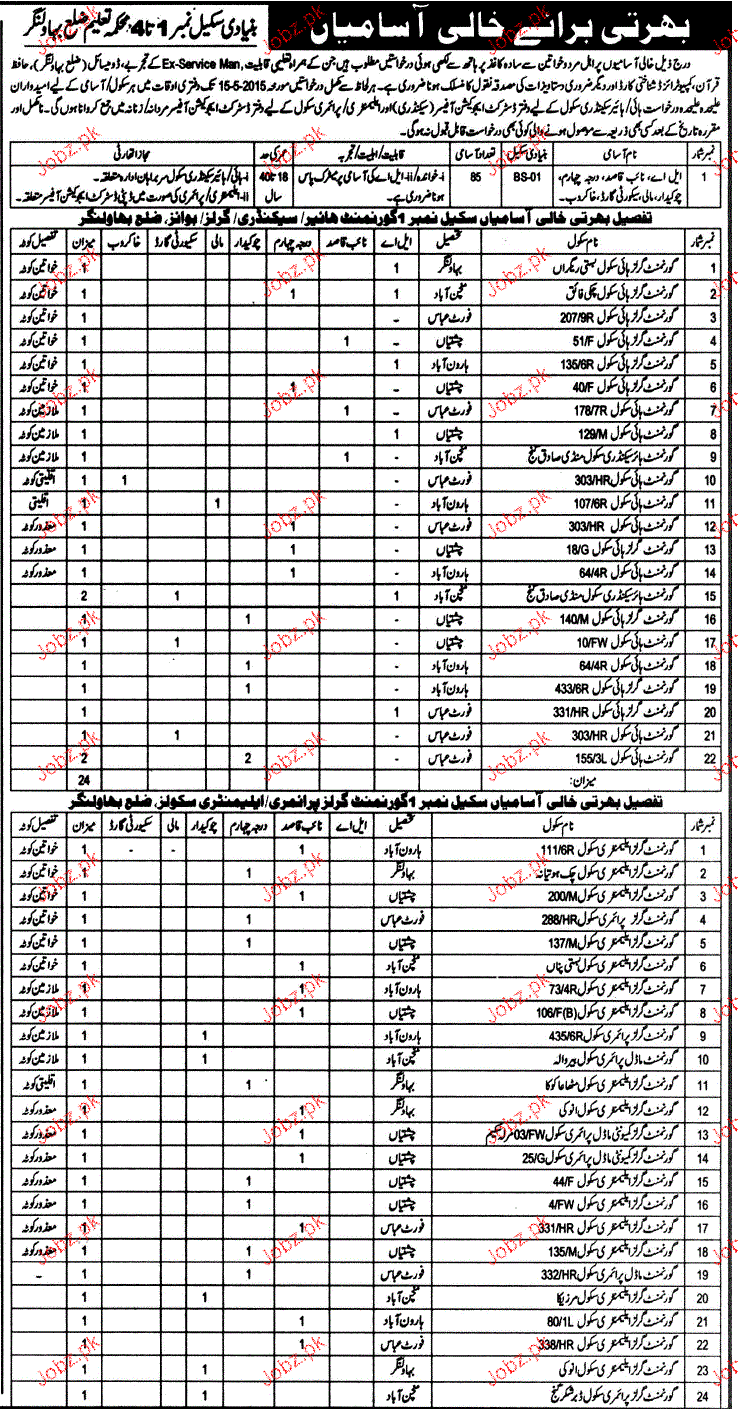 بھرتی برائے خالی آسامیاں
بنیادی سکیل نمبر 1 تا 4، محکمہ تعلیم ضلع بہاولنگر
درج ذیل خالی آسامیوں پر اہل مرد و خواتین سے سادہ کاغذ پر ہاتھ سے لکھی ہوئی درخواستیں مطلوب ہیں جن کے ہمراہ تعلیمی قابلیت، Ex-Service Man، کے تجربے، ڈومیسائل (ضلع بہاولنگر)، حافظ
قرآن، کمپیوٹرائزڈ شناختی کارڈ اور دیگر ضروری دستاویزات کی مصدقہ نقول کا منسلک ہونا ضروری ہے۔ ہر لحاظ سے مکمل درخواستیں مورخہ 15-5-2015 تک دفتری اوقات میں ہر سکول/آسامی کے لیے امیدواران
علیحدہ علیحدہ درخواست ہائی/ہائیر سیکنڈری سکول کے لیے دفتر ڈسٹرکٹ ایجوکیشن آفیسر (سیکنڈری) اور ایلیمنٹری/پرائمری سکول کے لیے دفتر ڈسٹرکٹ ایجوکیشن آفیسر مردانہ/زنانہ میں جمع کروانا ہوں گی۔ نامکمل اور
مقررہ تاریخ کے بعد کسی بھی ذریعہ سے موصول ہونے والی کوئی بھی درخواست قابل قبول نہ ہوگی۔
نمبر شمار نام آسامی بنیادی سکیل تعداد آسامی قابلیت/اہلیت/تجربہ عمر کی حد مجاز اتھارٹی
1 ایل اے، نائب قاصد، درجہ چہارم، BS-01 85 i۔ خواندہ/ii۔ ایل اے کی آسامی پر میٹرک پاس 18 تا 40 i۔ ہائی/ہائیر سیکنڈری سکول سربراہان ادارہ متعلقہ۔
چوکیدار، مالی، سیکورٹی گارڈ، خاکروب۔ ہونا ضروری ہے۔ سال ii۔ ایلیمنٹری/پرائمری کی صورت میں ڈپٹی ڈسٹرکٹ ایجوکیشن آفیسر متعلقہ۔
تفصیل بھرتی خالی آسامیاں سکیل نمبر 1 گورنمنٹ ہائیر/سیکنڈری/گرلز/بوائز، ضلع بہاولنگر
نمبر شمار نام سکول تحصیل ایل اے نائب قاصد درجہ چہارم چوکیدار مالی سکیورٹی گارڈ خاکروب میزان تفصیل کوٹہ
1 گورنمنٹ گرلز ہائی سکول بستی بہاولنگر 1 1 خواتین کوٹہ
2 گورنمنٹ گرلز ہائی سکول چکی فائق منچن آباد 1 1 1 خواتین کوٹہ
3 گورنمنٹ گرلز ہائی سکول 207/9R فورٹ عباس - 1 خواتین کوٹہ
4 گورنمنٹ گرلز ہائی سکول 51/F چشتیاں 1 1 خواتین کوٹہ
5 گورنمنٹ گرلز ہائی سکول 135/6R ہارون آباد 1 1 خواتین کوٹہ
6 گورنمنٹ گرلز ہائی سکول 40/F چشتیاں - 1 1 خواتین کوٹہ
7 گورنمنٹ ہائی سکول 178/7R فورٹ عباس - 1 1 ملازمین کوٹہ
8 گورنمنٹ ہائی سکول 129/M چشتیاں 1 1 ملازمین کوٹہ
9 گورنمنٹ ہائر سیکنڈری سکول منڈی صادق گنج منچن آباد - 1 1 ملازمین کوٹہ
10 گورنمنٹ ہائی سکول 303/HR فورٹ عباس - 1 1 اقلیتی کوٹہ
11 گورنمنٹ ہائی سکول 107/6R ہارون آباد - 1 1 اقلیتی
12 گورنمنٹ ہائی سکول 303/HR فورٹ عباس - 1 1 معذور کوٹہ
13 گورنمنٹ گرلز ہائی سکول 18/G چشتیاں - 1 1 معذور کوٹہ
14 گورنمنٹ ہائی سکول 64/4R ہارون آباد - 1 1 معذور کوٹہ
15 گورنمنٹ ہائر سیکنڈری سکول منڈی صادق گنج منچن آباد 1 1 2
16 گورنمنٹ ہائی سکول 140/M چشتیاں - 1 1
17 گورنمنٹ ہائی سکول 10/FW چشتیاں - 1 1
18 گورنمنٹ ہائی سکول 64/4R ہارون آباد - 1 1
19 گورنمنٹ گرلز ہائی سکول 433/6R ہارون آباد - 1 1
20 گورنمنٹ گرلز ہائی سکول 331/HR فورٹ عباس 1 1
21 گورنمنٹ ہائی سکول 303/HR فورٹ عباس - 1 1
22 گورنمنٹ ہائی سکول 155/3L فورٹ عباس - 2 2
میزان: 24
تفصیل بھرتی خالی آسامیاں سکیل نمبر 1 گورنمنٹ گرلز پرائمری/ایلیمنٹری سکولز، ضلع بہاولنگر
نمبر شمار نام سکول تحصیل ایل اے نائب قاصد درجہ چہارم چوکیدار مالی سکیورٹی گارڈ میزان تفصیل کوٹہ
1 گورنمنٹ گرلز ایلیمنٹری سکول 111/6R ہارون آباد 1 - - 1 خواتین کوٹہ
2 گورنمنٹ گرلز ایلیمنٹری سکول چک ہوتیانہ بہاولنگر 1 1 خواتین کوٹہ
3 گورنمنٹ گرلز ایلیمنٹری سکول 200/M چشتیاں 1 1 خواتین کوٹہ
4 گورنمنٹ گرلز پرائمری سکول 288/HR فورٹ عباس 1 1 خواتین کوٹہ
5 گورنمنٹ گرلز ایلیمنٹری سکول 137/M چشتیاں 1 1 خواتین کوٹہ
6 گورنمنٹ گرلز ایلیمنٹری سکول بستی پناں منچن آباد 1 1 خواتین کوٹہ
7 گورنمنٹ گرلز ایلیمنٹری سکول 73/4R ہارون آباد 1 1 ملازمین کوٹہ
8 گورنمنٹ گرلز ایلیمنٹری سکول 106/F(B) چشتیاں 1 1 ملازمین کوٹہ
9 گورنمنٹ گرلز پرائمری سکول 435/6R ہارون آباد 1 1 ملازمین کوٹہ
10 گورنمنٹ ماڈل پرائمری سکول بیروالہ منچن آباد 1 1 ملازمین کوٹہ
11 گورنمنٹ گرلز ایلیمنٹری سکول بہاولنگر 1 1 اقلیتی کوٹہ
12 گورنمنٹ گرلز ایلیمنٹری سکول انوکی بہاولنگر 1 1 معذور کوٹہ
13 گورنمنٹ گرلز کمیونٹی ماڈل پرائمری سکول 03/FW مرلہ سکیم چشتیاں 1 1 معذور کوٹہ
14 گورنمنٹ گرلز کمیونٹی ماڈل پرائمری سکول 25/G چشتیاں 1 1 معذور کوٹہ
15 گورنمنٹ گرلز ایلیمنٹری سکول 44/F چشتیاں 1 1 معذور کوٹہ
16 گورنمنٹ گرلز ایلیمنٹری سکول 4/FW چشتیاں 1 1 معذور کوٹہ
17 گورنمنٹ گرلز ایلیمنٹری سکول 331/HR فورٹ عباس 1 1 معذور کوٹہ
18 گورنمنٹ گرلز ایلیمنٹری سکول 135/M چشتیاں 1 1 معذور کوٹہ
19 گورنمنٹ ماڈل پرائمری سکول 332/HR فورٹ عباس 1 1 -
20 گورنمنٹ گرلز ایلیمنٹری سکول مرزیکا منچن آباد 1 1
21 گورنمنٹ گرلز ایلیمنٹری سکول 80/1L ہارون آباد 1 1
22 گورنمنٹ گرلز ایلیمنٹری سکول 338/HR فورٹ عباس 1 1
23 گورنمنٹ گرلز ایلیمنٹری سکول انوکی بہاولنگر 1 1
24 گورنمنٹ گرلز پرائمری سکول ڈبر شکر گنج منچن آباد 1 1